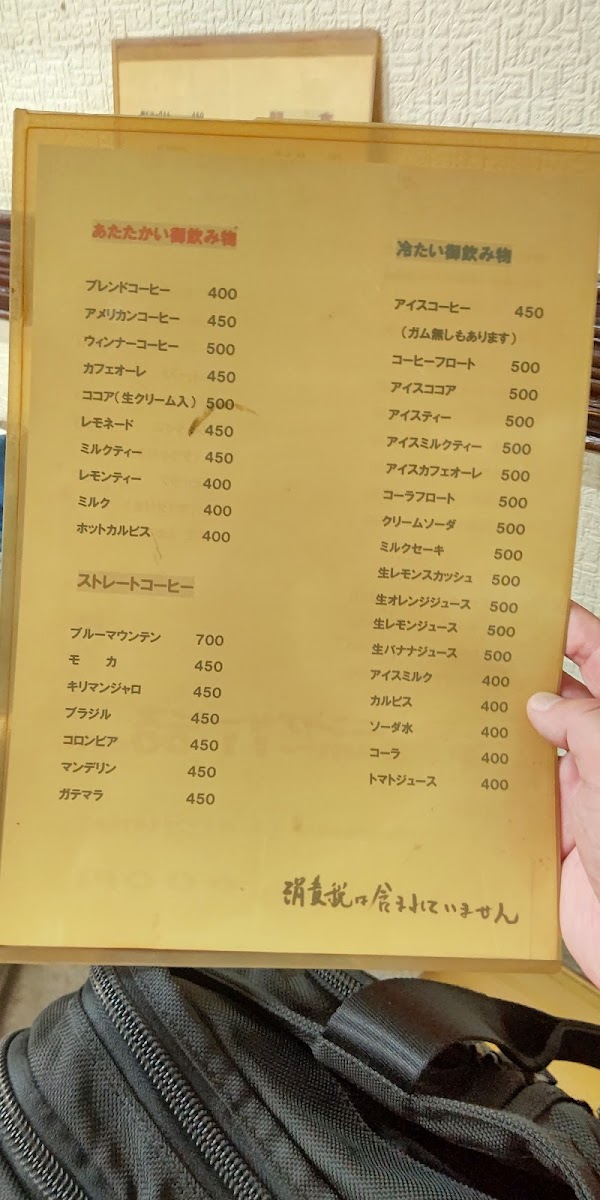 あたたかい御飲み物
ブレンドコーヒー 400
アメリカンコーヒー 450
ウィンナーコーヒー 500
カフェオーレ 450
ココア(生クリーム入) 500
レモネード 450
ミルクティー 450
レモンティー 400
ミルク 400
ホットカルピス 400
ストレートコーヒー
ブルーマウンテン 700
モ カ 450
キリマンジャロ 450
ブラジル 450
コロンビア 450
マンデリン 450
ガテマラ 450
冷たい御飲み物
アイスコーヒー 450
(ガム無しもあります)
コーヒーフロート 500
アイスココア 500
アイスティー 500
アイスミルクティー 500
アイスカフェオーレ 500
コーラフロート 500
クリームソーダ 500
ミルクセーキ 500
生レモンスカッシュ 500
生オレンジジュース 500
生レモンジュース 500
生バナナジュース 500
アイスミルク 400
カルピス 400
ソーダ水 400
コーラ 400
トマトジュース 400
消費税は含まれていません